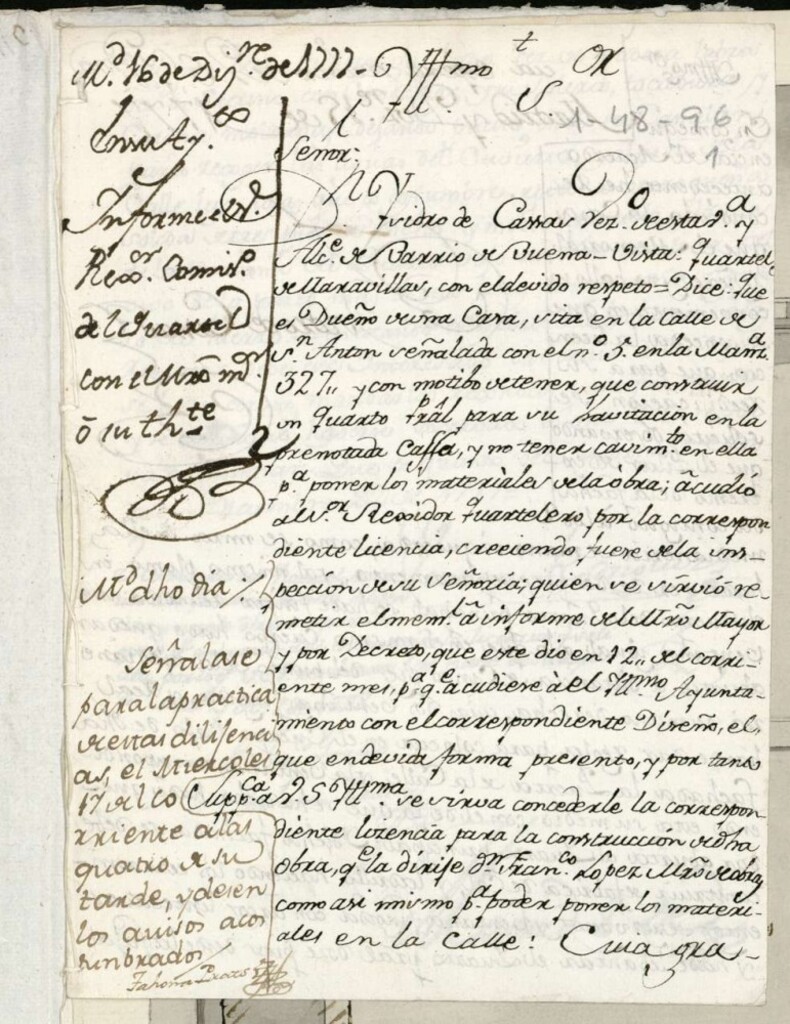 M.d 16 de Diz.re de 1777.
En su Ay.to
Informe el S.
Rexor. Comis.o
del Quartel
con el Mro m.or
ó su th.te
M.d dho dia
Señalase
para la practica
de estas dilixenci
as, el Miercoles
17 del co
rriente a las
quatro de su
tarde, y desen
los avisos acos
tumbrados
Yllmo
S.
1-48-96
1
Señor:
Ysidro de Cassas Vez.o de esta V.a y
Alc.e de Barrio de Buena-Vista: Quartel
de Maravillas, con el devido respeto = Dice: que
es Dueño de una Casa, sita en la calle de
S.n Anton señalada con el n.o 5. en la Manz.a
327,, y con motibo de tener, que construir
un quarto pral para su havitación en la
prenotada Cassa, y no tener cavim.to en ella
p.a poner los materiàles de la òbra; ácudió
al S.or Rexidor quartelero por la correspon
diente licencia, creciendo fuese de la ins-
pección de su Señoria; quien se sirvió re-
metir el mem.l á informe del Mrõ Mayor
y por Decreto, que este dio en 12,, del corri-
ente mes, p.a q.e acudiese à el Yll.mo Ayunta-
miento con el correspondiente Diseño, el
que en devida forma presento, y por tanto
Supp.ca a V. S. Yll.ma se sirva concederle la correspon-
diente lizencia para la construcción de dha
Obra, q.e la dirije d.n Fran.co Lopez Mrõ de obras
como asi mismo p.a poder poner los materi-
ales en la Calle: Cuia gra-